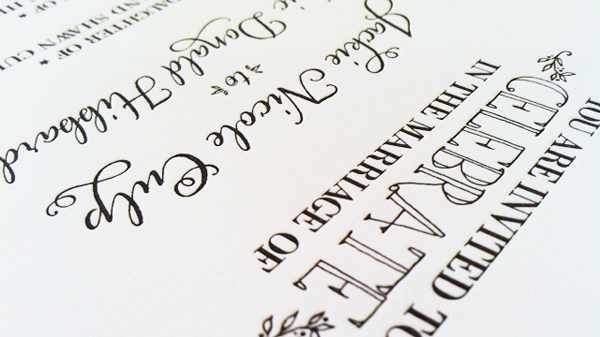 YOU ARE INVITED TO
CELEBRATE
IN THE MARRIAGE OF
Jackie Nicole Culp
to
Donald Hibbard
DAUGHTER OF
AND SHAWN
OF